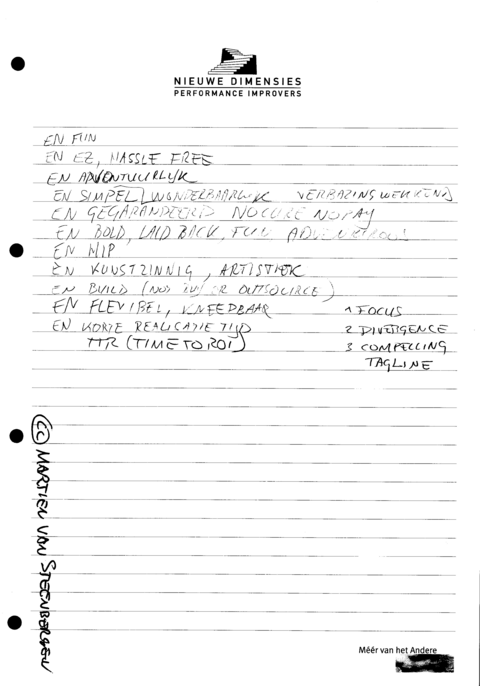 NIEUWE DIMENSIES
PERFORMANCE IMPROVERS
EN FIJN
EN EZ, HASSLE FREE
EN ADVENTUURLIJK
EN SIMPEL WONDERBAARLIJK VERBAZINGSWEKKEND
EN GEGARANDEERD NO CURE NO PAY
EN BOLD, LAID BACK, FULL
EN HIP
EN KUNSTZINNIG, ARTISTIEK
EN BUILD ( OUTSOURCE)
EN FLEXIBEL, KNEEDBAAR
1 FOCUS
EN KORTE REALISATIE TIJD
2 DIVERGENCE
TTR (TIME TO ROI)
3 COMPELLING
TAGLINE
(CC) MARTIEN VAN STEENBERGEN
Méér van het Andere